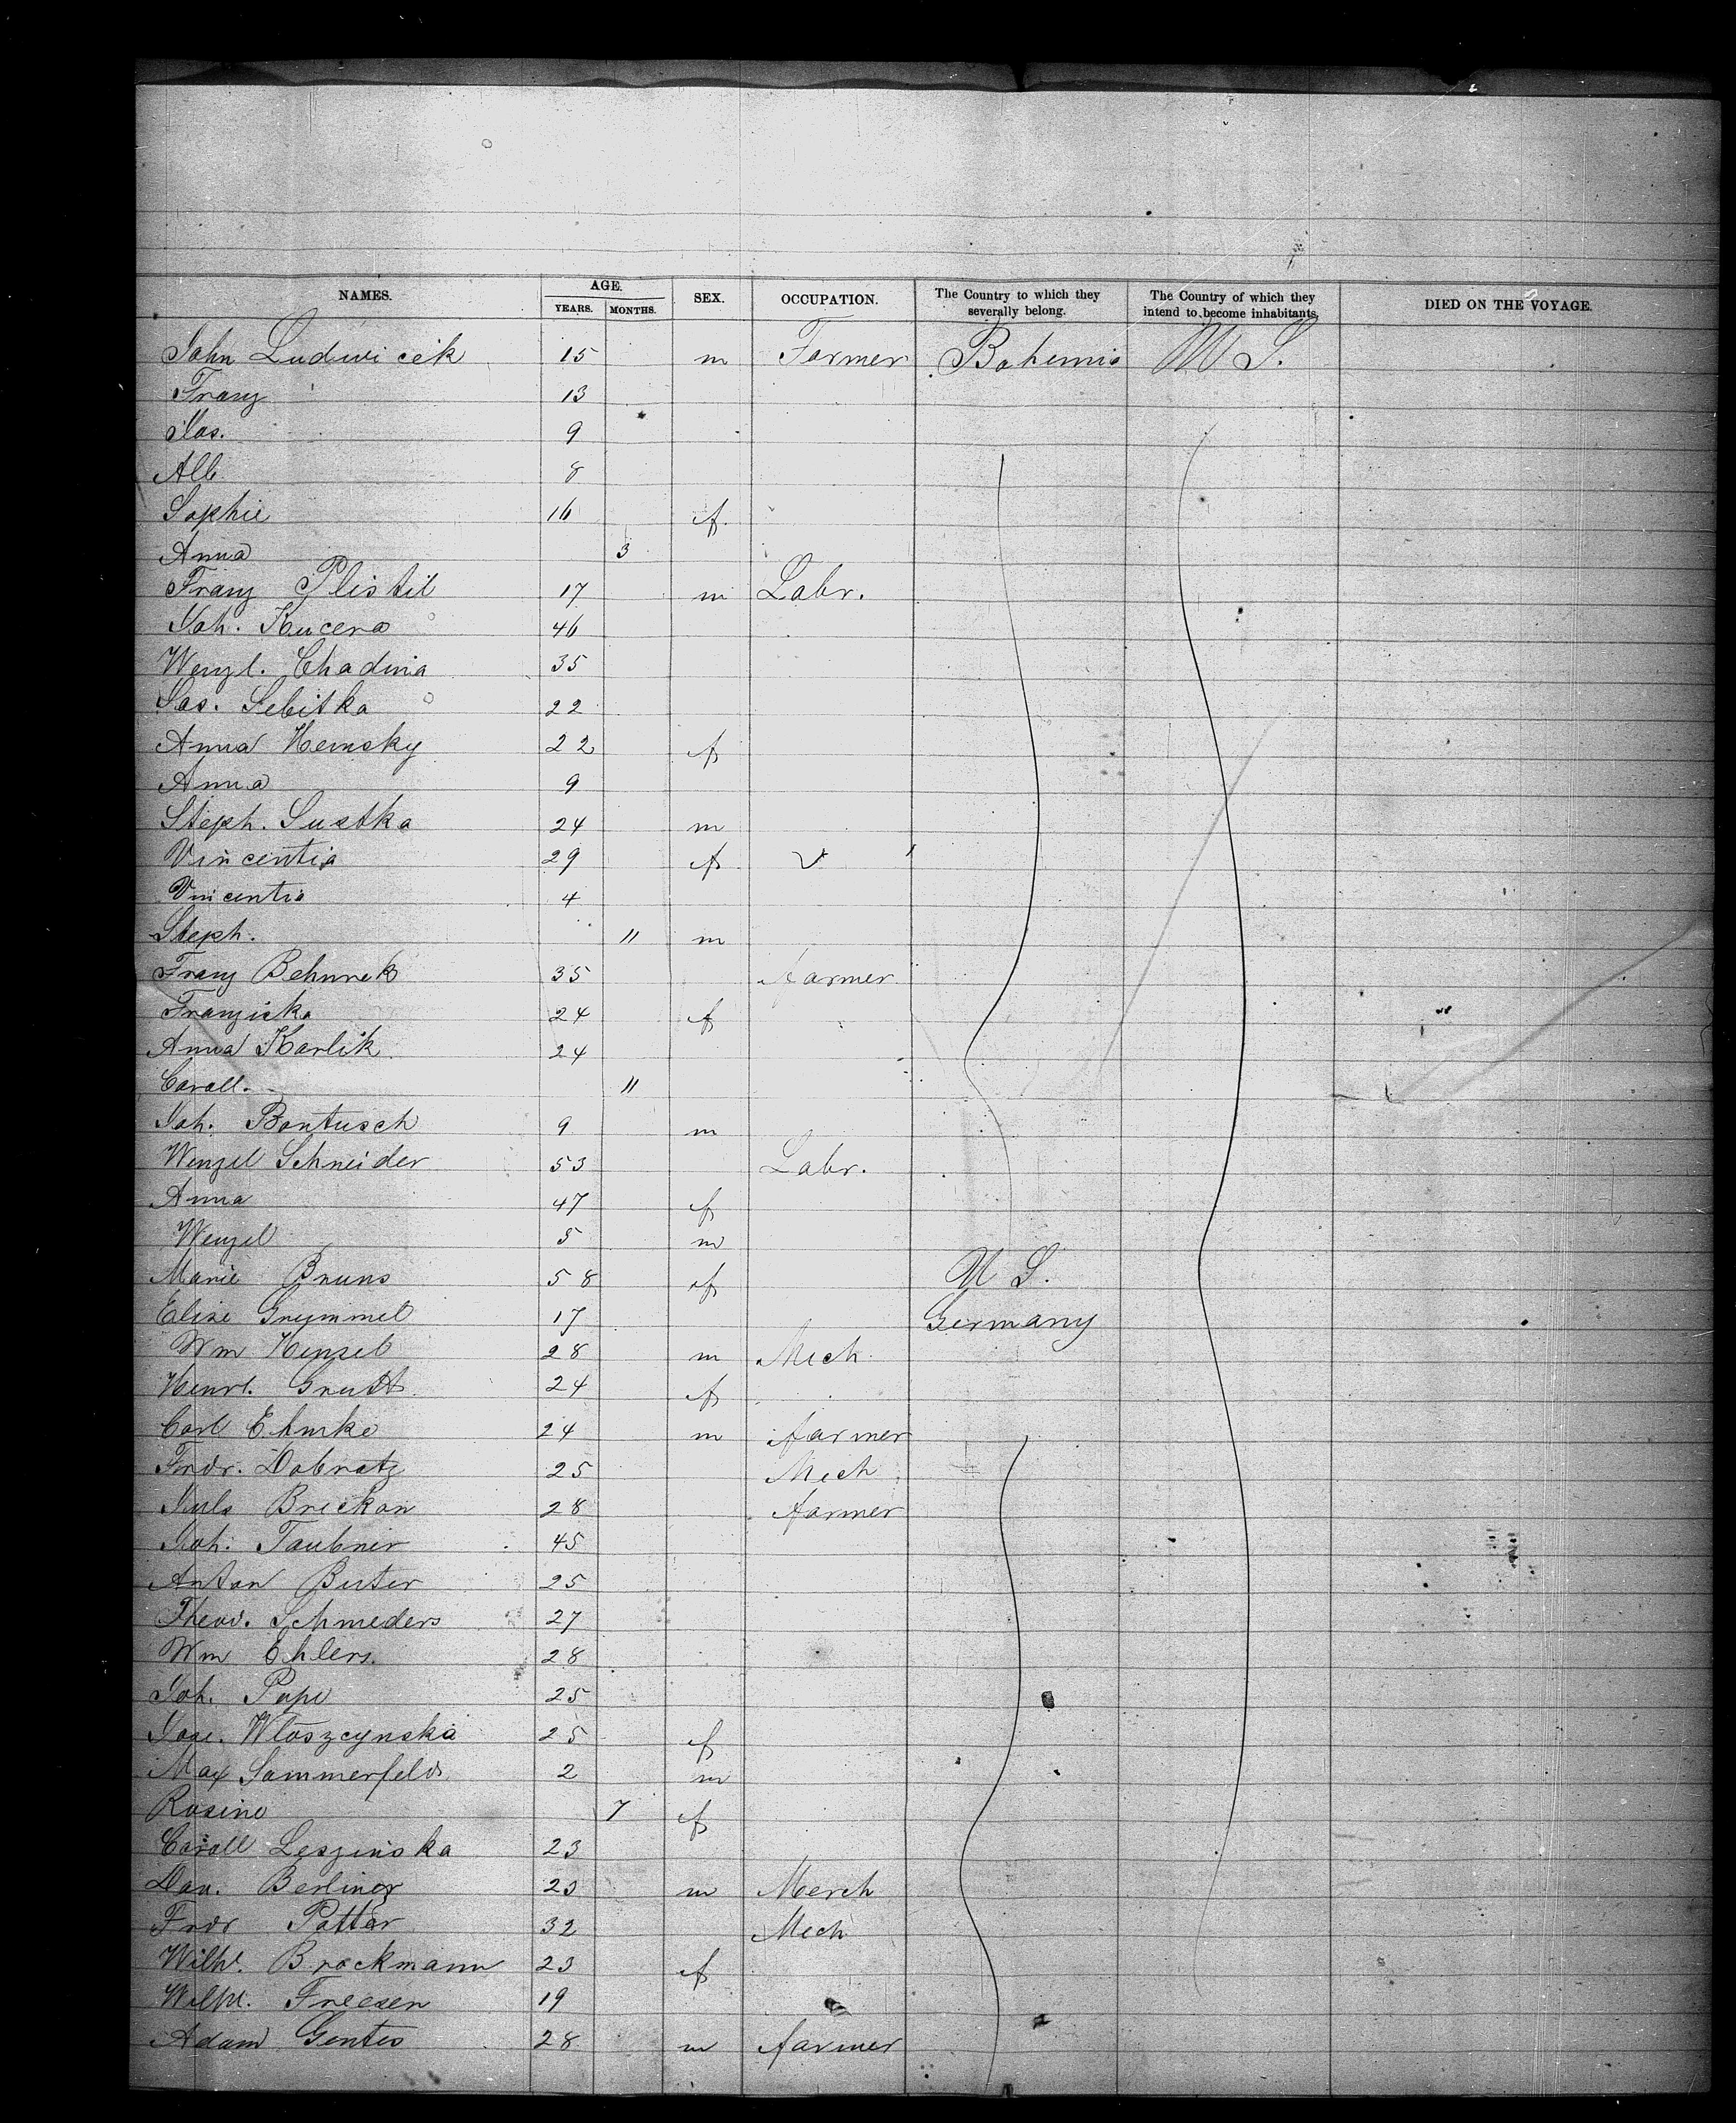 NAMES. AGE. YEARS. MONTHS. SEX. OCCUPATION. The Country to which they severally belong. The Country of which they intend to become inhabitants. DIED ON THE VOYAGE.
John Ludwicek 15 m Farmer Bohemia U S.
Franz 13
Jos. 9
Alb 8
Sophie 16 f
Anna 3
Franz Plistil 17 m Labr.
Joh. Kucera 46
Wenzl. Chadina 35
Jos. Sebitka 22
Anna Hemsky 22 f
Anna 9
Steph. Sustka 24 m
Vincentia 29 f
Vincentia 4
Steph. 11 m
Franz 35 farmer
Franziska 24 f
Anna Karlik 24
Caroll. 11
Joh. Bontusch 9 m
Wenzel Schneider 53 Labr.
Anna 47 f
Wenzel 5 m
Marie Bruns 58 f U S.
Elise Grymmel 17 Germany
Wm Henzel 28 m Mech
Henrt. 24 f
Carl Ehmke 24 m farmer
Fredr. Dobratz 25 Mech
Juls Brickan 28 farmer
Joh. Taubner 45
Anton Buter 25
Theod. Schmeders 27
Wm Ehlers. 28
Joh. Pape 25
Jose. Wloszcynska 25 f
Max Sommerfeld 2 m
Rosine 7 f
Caroll Leszinska 23
Dan. Berliner 23 m Merch
Fredr Potter 32 Mech
Wilh. Brockmann 23 f
Wilhl. Freesen 19
Adam Gentes 28 m farmer